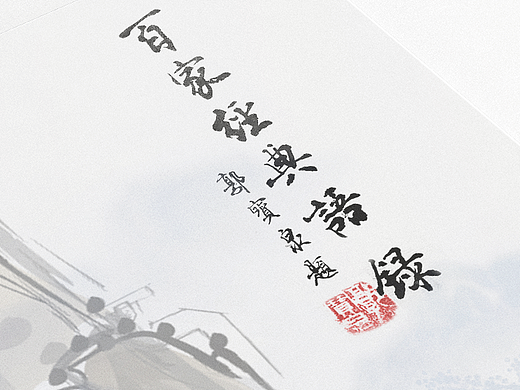 百家經典語錄
郭寶泉題